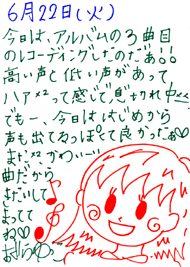 6月22日(火)
今日は、アルバムの3曲目
のレコーディングしたのだぁ!!
高い声と低い声があって
ハァ××って感じで息切れ中…
でもー、今日ははじめから
声も出てるっぽくて良かったぁ♡
まだ××かわいー
曲だから
きたいして
まってて
ね♡